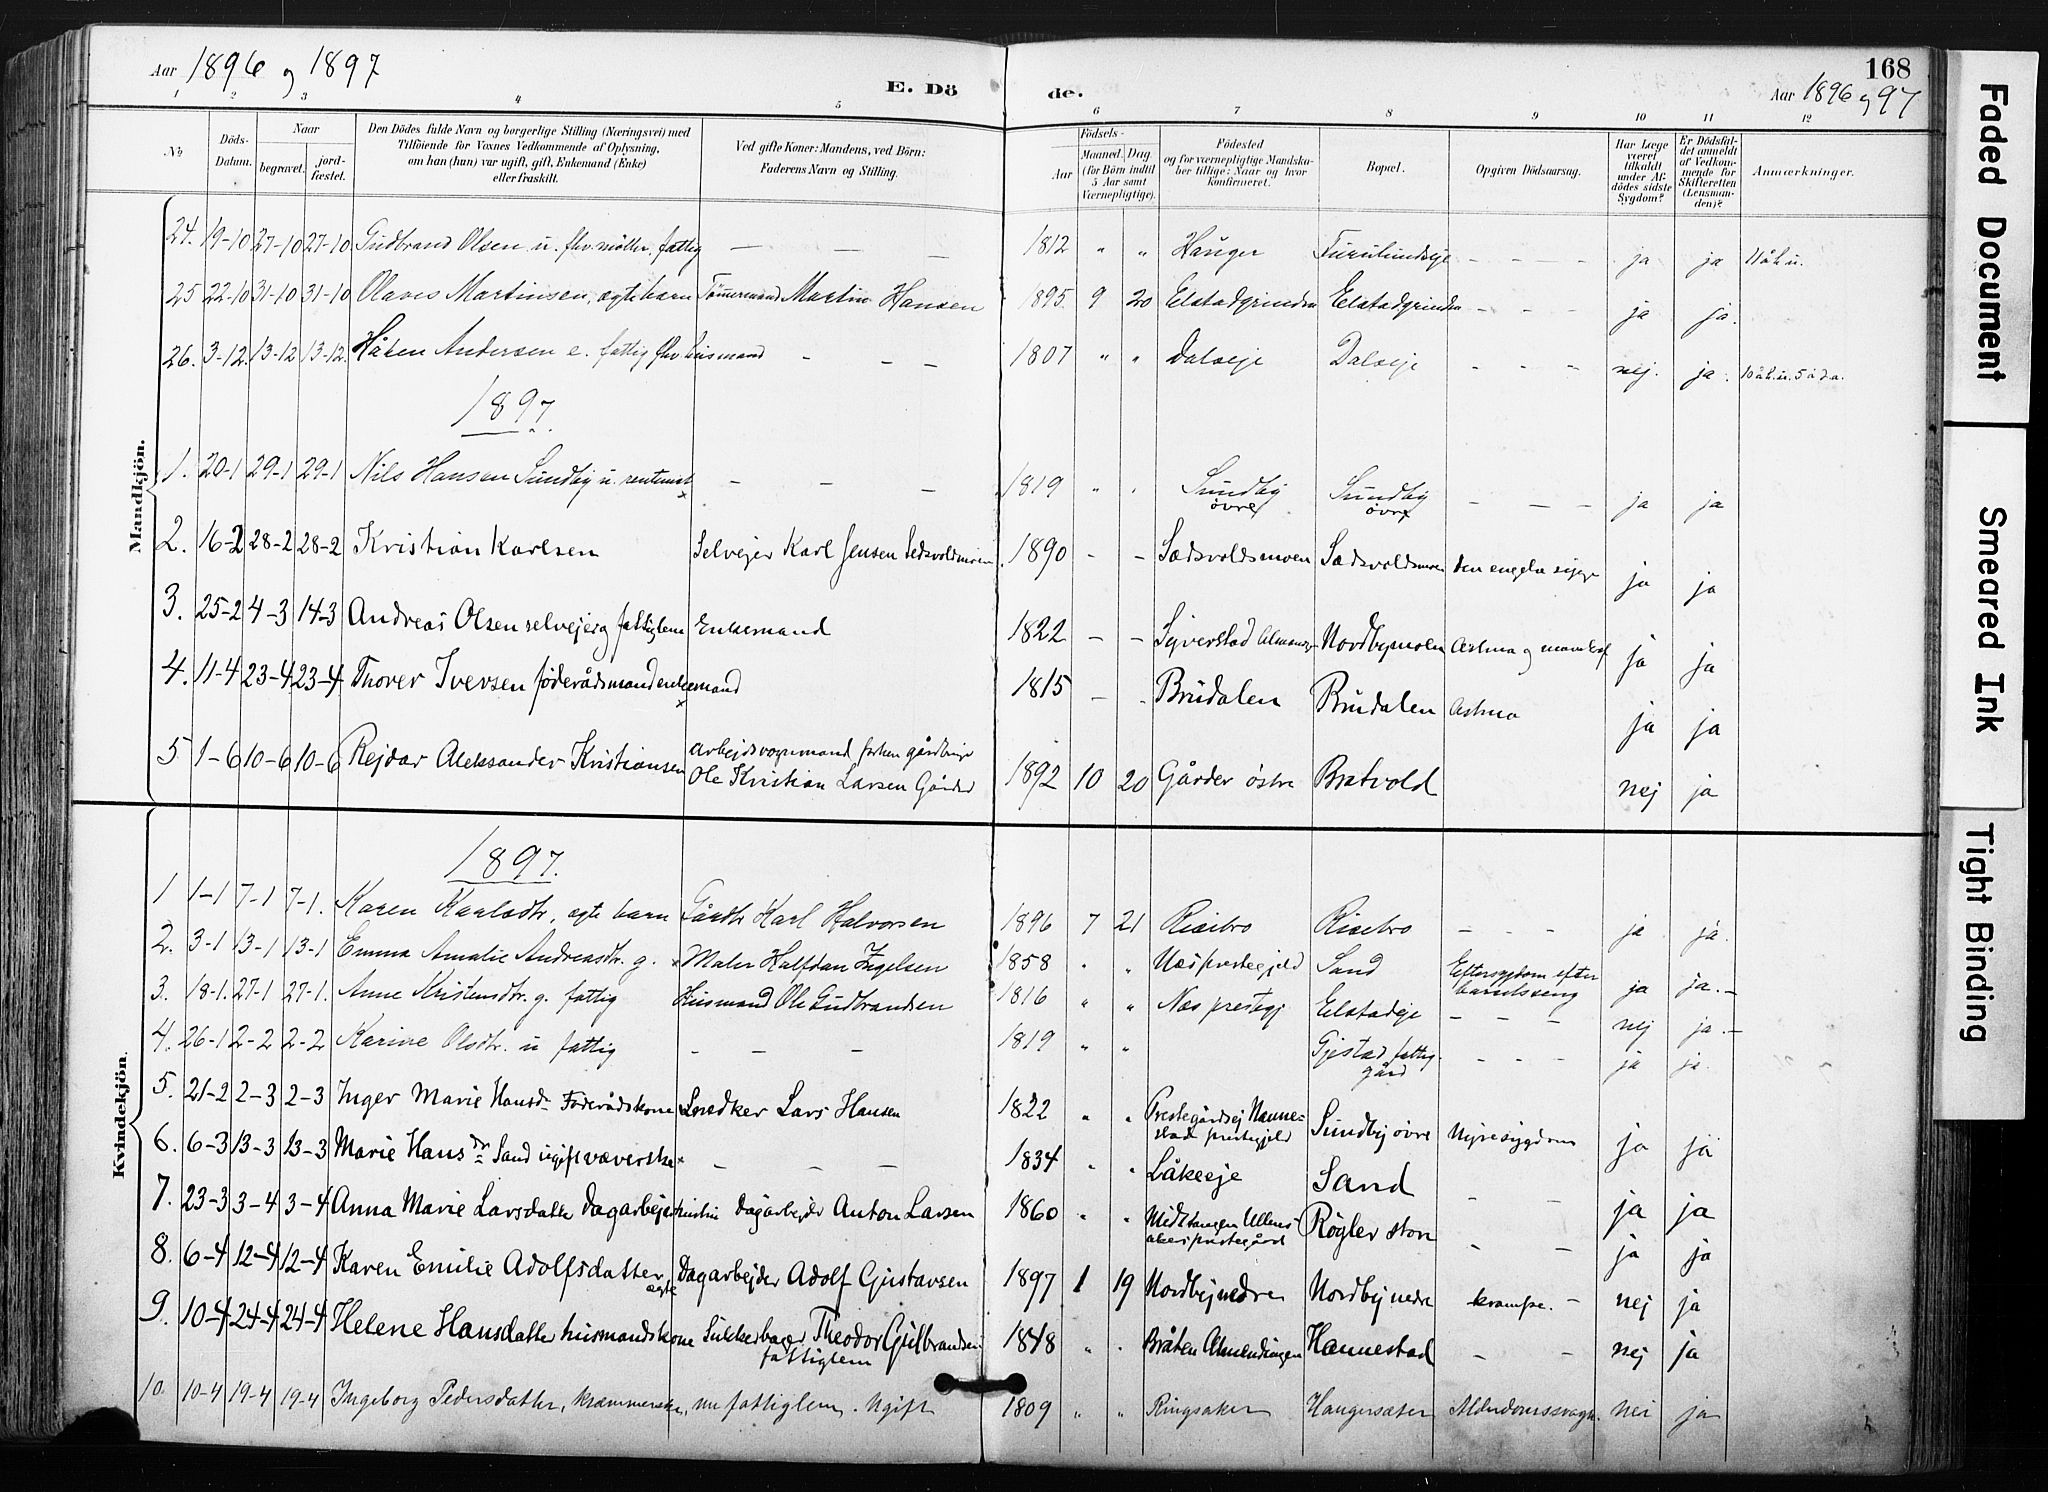 Aar 1896 og 1897
E. Dö
de.
168
Aar 1896 og 97
1 2 3 4 5 6 7 8 9 10 11 12
№ Döds-Datum. Naar begravet. jord-fæstet. Den Dödes fulde Navn og borgerlige Stilling (Næringsvei) med Tilföiende for Voxnes Vedkommende af Oplysning, om han (hun) var ugift, gift, Enkemand (Enke) eller fraskilt. Ved gifte Koner: Mandens, ved Börn: Faderens Navn og Stilling. Födsels- Aar Maaned. Dag (for Börn indtil 5 Aar samt Værnepligtige). Födested og for værnepligtige Mandskaber tillige: Naar og hvor konfirmeret. Bopæl. Opgiven Dödsaarsag. Har Læge været tilkaldt under Afdödes sidste Sygdom? Er Dödsfaldet anmeldt af Vedkommende for Skifteretten (Lensmanden)? Anmærkninger.
Mandkjön.
24. 19-10 27-10 27-10 Gudbrand Olsen u. fhv. møller, fattig — — — 1812 " " Hauger Furulundseje - - - ja ja
25 22-10 31-10 31-10 Olaves Martinsen, ægte barn Tømermand Martin Hansen 1895 9 20 Elstadgrinden Elstadgrinden - - - ja ja.
26. 3-12. 13-12 13-12. Håken Andersen e. fattig fhv husmand - - - 1807 " " Dalseje Dalseje - - - nej. ja.
1897.
1. 20-1 29-1 29-1 Nils Hansen Sundby u. rentenist — — — 1819 " " Sundby øvre Sundby øvre - - - ja ja
2. 16-2 28-2 28-2 Kristian Karlsen Selvejer Karl Jensen Sedsvoldsmoen 1890 - - Sædsvoldsmoen Sædsvoldsmoen Den engelske syge ja ja
3. 25-2 4-3 14-3 Andreas Olsen selvejer og fattiglem Enkemand 1822 - - Syverstad Almening Nordbymoen Astma og ja ja
4. 11-4 23-4 23-4 Thorer Iversen føderådsmand enkemand 1815 - - Brudalen Brudalen Astma ja ja
5 1-6 10-6 10-6 Rejdar Aleksander Kristiansen arbejdsvognmand Ole Kristian Larsen Gårder 1892 10 20 Gårder østre Bratvold nej ja
Kvindekjön.
1897.
1 1-1 7-1 7-1. Karen Karlsdtr. ægte barn Gårdbr Karl Halvorsen 1896 7 21 Risebro Risebro - - - ja ja.
2. 3-1 13-1 13-1 Emma Amalie Andreasdtr. g. Maler Halfdan Ingelsen 1858 " " Næs prestegjeld Sand Eftersygdom efter barselsseng ja ja.-
3. 18-1. 27-1 27-1. Anne Kristensdtr. g. fattig Husmand Ole Gudbrandsen 1816 " " Næs prestegj Elstadeje - - - nej ja.-
4. 26-1 2-2 2-2 Karine Olsdtr. u fattig - - - 1819 " " Gjestad fattiggård - - - ja ja.
5. 21-2 2-3 2-3 Inger Marie Hansdr Føderådskone Snedker Lars Hansen 1822 " " Prestegårdsej Nannestad prestegjeld Sundby øvre Nyresygdom ja ja
6. 6-3 13-3 13-3 Marie Hansdr Sand ugift væverske - - - 1834 " " Låkeeje Sand - - ja ja
7. 23-3 3-4 3-4 Anna Marie Larsdatter Dagarbejderhustru Dagarbejder Anton Larsen 1860 " " Midtskogen Ullensakers prestegård Røgler store - - ja ja
8. 6-4 12-4 12-4 Karen Emilie Adolfsdatter ægte Dagarbejder Adolf Gustavsen 1897 1 19 Nordby nedre Nordby nedre krampe. - nej ja
9. 10-4 24-4 24-4 Helene Hansdatter husmandskone Sukkerbager Theodor Gulbrandsen fattiglem 1848 " " Bråten Almendingen Hannestad - - nej ja
10. 10-4 19-4 19-4 Ingeborg Pedersdatter, kræmmerske, nu fattiglem. Ugift 1809 " " Ringsaker Haugersæter Alderdomssvagh. nei ja
Faded Document
Smeared Ink
Tight Binding